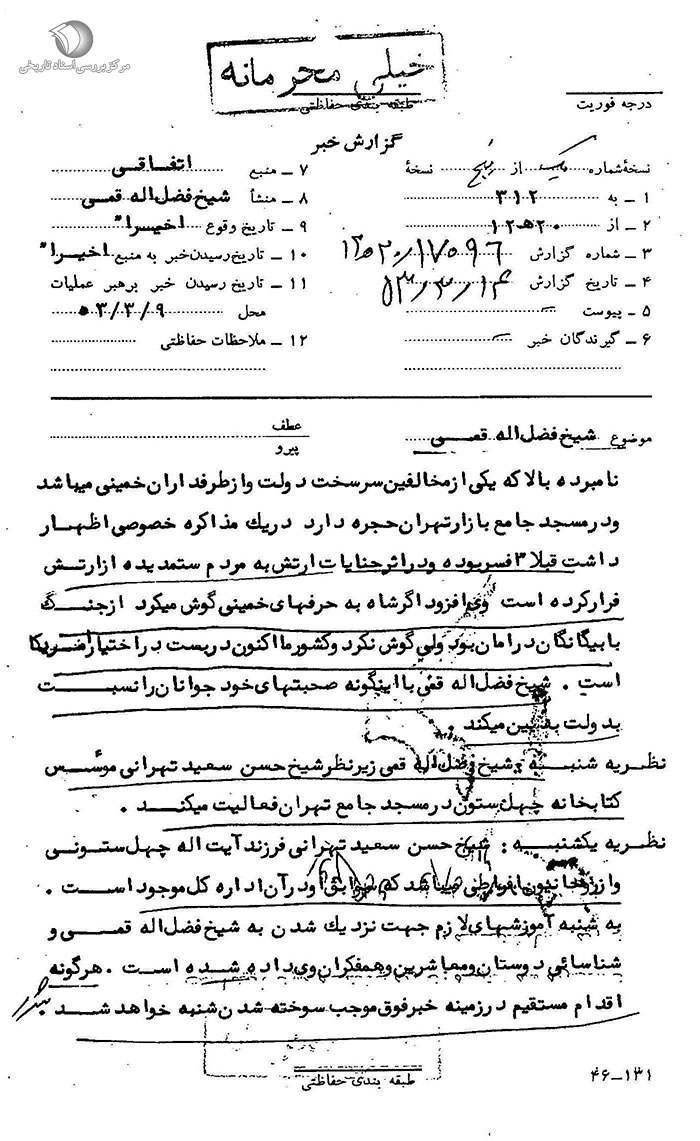 مرکز بررسی اسناد تاریخی
خیلی محرمانه
طبقه بندی حفاظتی
درجه فوریت
گزارش خبر
نسخهٔ شماره یک از پنج نسخهٔ
۱ ـ به ۳۱۲
۲ ـ از ۲۰ه۱۲
۳ ـ شماره گزارش
۴ ـ تاریخ گزارش
۵ ـ پیوست
۶ ـ گیرندگان خبر
۷ ـ منبع اتفاقی
۸ ـ منشأ شیخ فضل اله قمی
۹ ـ تاریخ وقوع اخیرا"
۱۰ ـ تاریخ رسیدن خبر به منبع اخیرا"
۱۱ ـ تاریخ رسیدن خبر برهبر عملیات
محل ۵۳/۳/۹
۱۲ ـ ملاحظات حفاظتی
موضوع شیخ فضل اله قمی
عطف
پیرو
نامبرده بالا که یکی از مخالفین سرسخت دولت و از طرفداران خمینی میباشد
و در مسجد جامع بازار تهران حجره دارد در یك مذاکره خصوصی اظهار
داشت قبلا ۳ افسر بوده و در اثر جنایات ارتش به مردم ستمدیده از ارتش
فرار کرده است وی افزود اگر شاه به حرفهای خمینی گوش میکرد از جنگ
با بیگانگان در امان بود ولی گوش نکرد و کشور ما اکنون دربست در اختیار امریکا
است . شیخ فضل اله قمی با اینگونه صحبتهای خود جوانان را نسبت
بدولت بدبین میکند .
نظریه شنبه : شیخ فضل اله قمی زیر نظر شیخ حسن سعید تهرانی موئسس
کتابخانه چهل ستون در مسجد جامع تهران فعالیت میکند .
نظریه یکشنبه : شیخ حسن سعید تهرانی فرزند آیت اله چهل ستونی
و از روحانیون افراطی میباشد که سوابق او در آن اداره کل موجود است .
به شنبه آموزشهای لازم جهت نزدیك شدن به شیخ فضل اله قمی و
شناسائی دوستان و معاشرین و همفکران وی داده شده است . هرگونه
اقدام مستقیم در زمینه خبر فوق موجب سوخته شدن شنبه خواهد شد
طبقه بندی حفاظتی
۴۶-۱۳۱